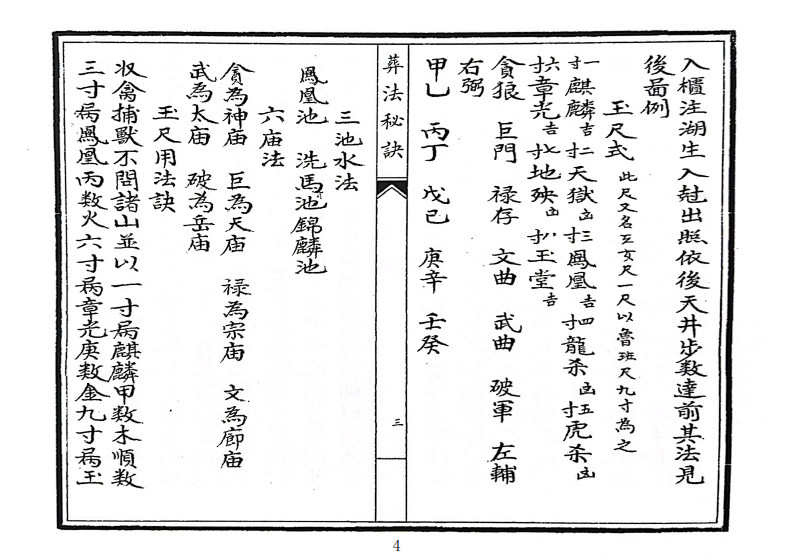 入櫃注湖生入尅出照依後天井步数達前其法見
後畐例
玉尺式 此尺又名玉女尺一尺以魯班尺九寸為之
一寸麒麟吉二寸天獄凶三寸鳳凰吉四寸龍杀凶五寸虎杀凶
六寸章光吉七寸地殃凶八寸玉堂吉
貪狼 巨門 禄存 文曲 武曲 破軍 左輔
右弼
甲乙 丙丁 戊己 庚辛 壬癸
葬法秘訣
三
三池水法
鳳凰池 洗馬池 錦麟池
六庙法
貪為神庙 巨為天庙 禄為宗庙 文為廊庙
武為太庙 破為岳庙
玉尺用法訣
収禽捕獸不問諸山並以一寸為麒麟甲数木順数
三寸為鳳凰丙数火六寸為章光庚数金九寸為玉
4